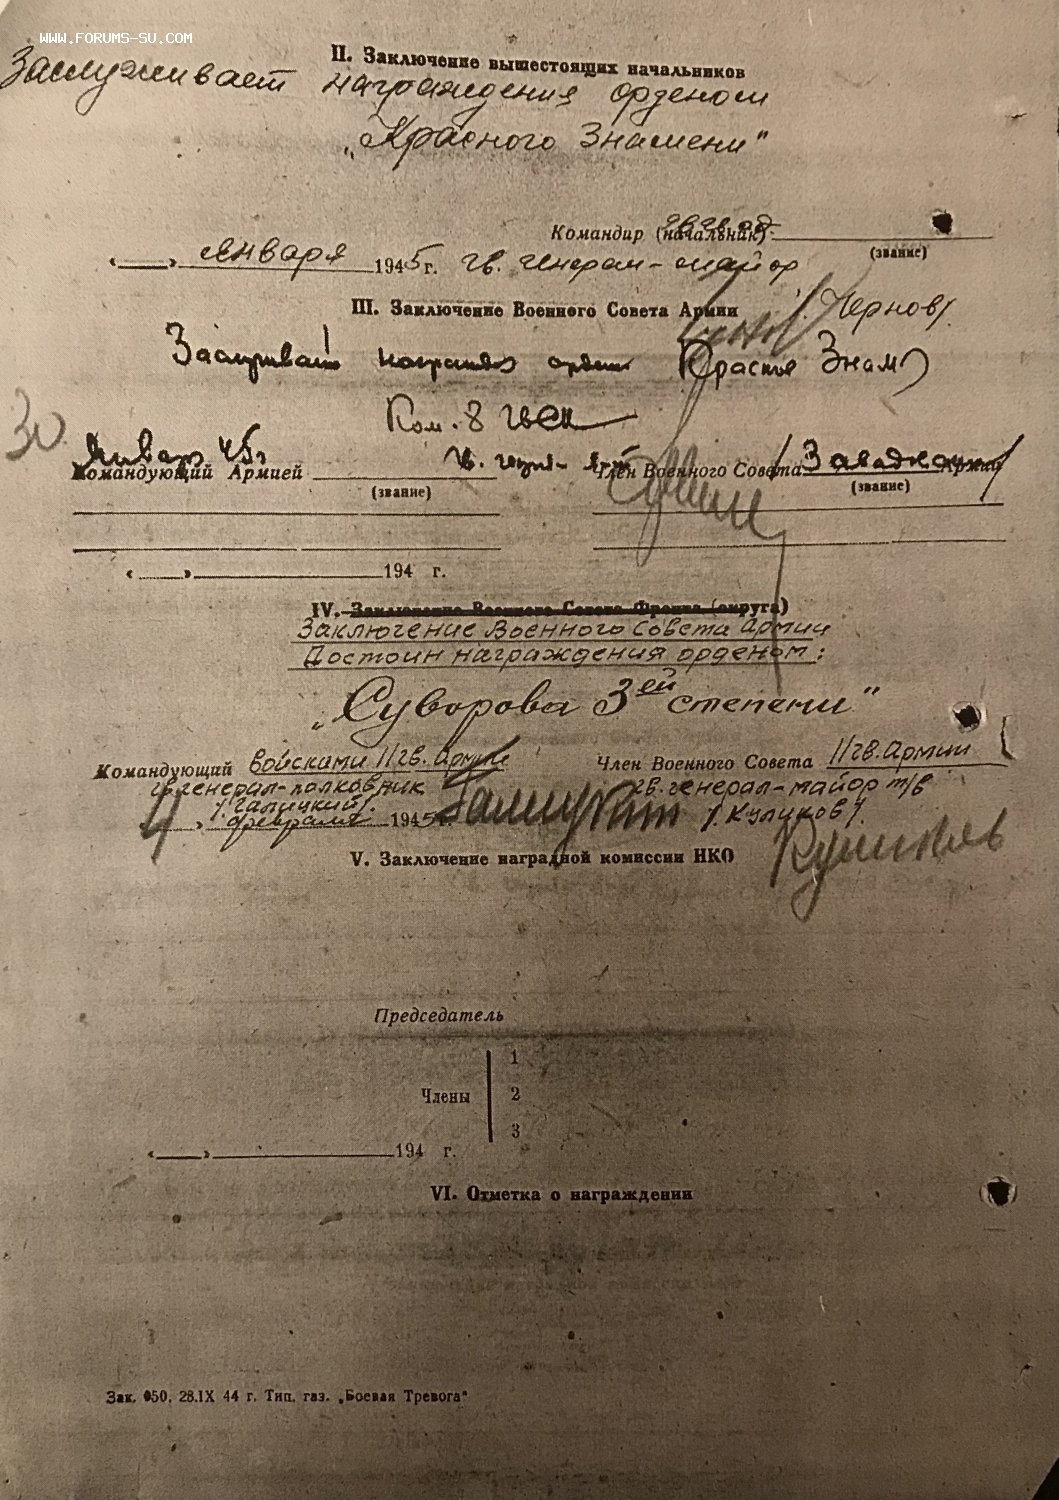 WWW.FORUMS-SU.COM
II. Заключение вышестоящих начальников
Заслуживает награждения орденом
„Красного Знамени"
Командир (начальник)
(звание)
« » января 1945 г. гв. генерал-майор
III. Заключение Военного Совета Армии
/Чернов/.
Заслуживает Красное Знам
Ком. 8 гв ск
30
Январь 45г
Командующий Армией
Член Военного Совета
/Завадовский/
Армии
(звание)
(звание)
« » 194 г.
IV. Заключение Военного Совета Фронта (округа)
Заключение Военного Совета Армии
Достоин награждения орденом:
„Суворова 3ей степени"
Командующий войсками 11 гв. Армии
Член Военного Совета 11 гв. Армии
гв. генерал-полковник
гв. генерал-майор т/в
/Галицкий/.
/Куликов/.
4 » февраля 1945 г.
Галицкий
Куликов
V. Заключение наградной комиссии НКО
Председатель
Члены
1
2
3
« » 194 г.
VI. Отметка о награждении
Зак. 050, 28.IX 44 г. Тип. газ. „Боевая Тревога"